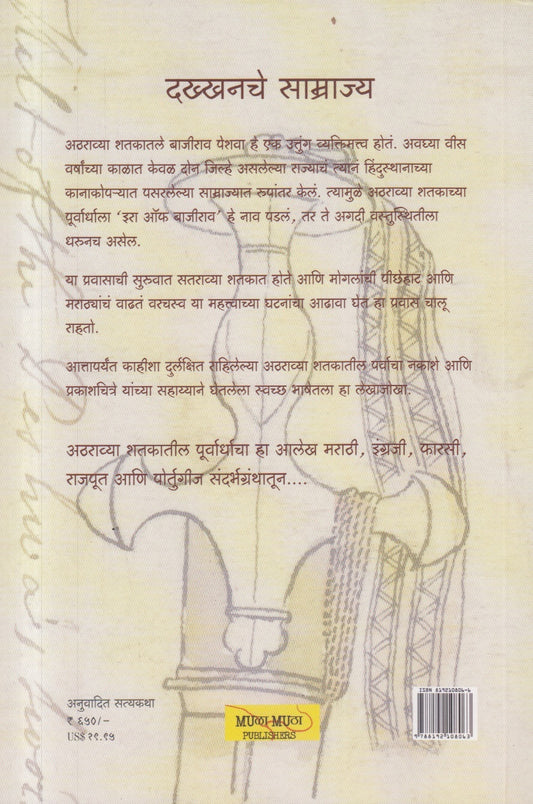 दख्खनचे साम्राज्य
अठराव्या शतकातले बाजीराव पेशवा हे एक उत्तुंग व्यक्तिमत्त्व होतं. अवघ्या वीस
वर्षांच्या काळात केवळ दोन जिल्हे असलेल्या राज्याचे त्यानं हिंदुस्थानाच्या
कानाकोपऱ्यात पसरलेल्या साम्राज्यात रुपांतर केलं. त्यामुळे अठराव्या शतकाच्या
पूर्वार्धाला ‘इरा ऑफ बाजीराव’ हे नाव पडलं, तर ते अगदी वस्तुस्थितीला
धरुनच असेल.
या प्रवासाची सुरुवात सतराव्या शतकात होते आणि मोगलांची पीछेहाट आणि
मराठ्यांचं वाढतं वरचस्व या महत्त्वाच्या घटनांचा आढावा घेत हा प्रवास चालू
राहतो.
आत्तापर्यंत काहीशा दुर्लक्षित राहिलेल्या अठराव्या शतकातील पर्वाचा नकाशे आणि
प्रकाशचित्रे यांच्या सहाय्याने घेतलेला स्वच्छ भाषेतला हा लेखाजोखा.
अठराव्या शतकातील पूर्वार्धाचा हा आलेख मराठी, इंग्रजी, फारसी,
राजपूत आणि पोर्तुगीज संदर्भग्रंथातून....
अनुवादित सत्यकथा
₹ ६५०/-
US$ १९.९५
MUळा MUठा
PUBLISHERS
ISBN 819210806-6
9 788192 108063